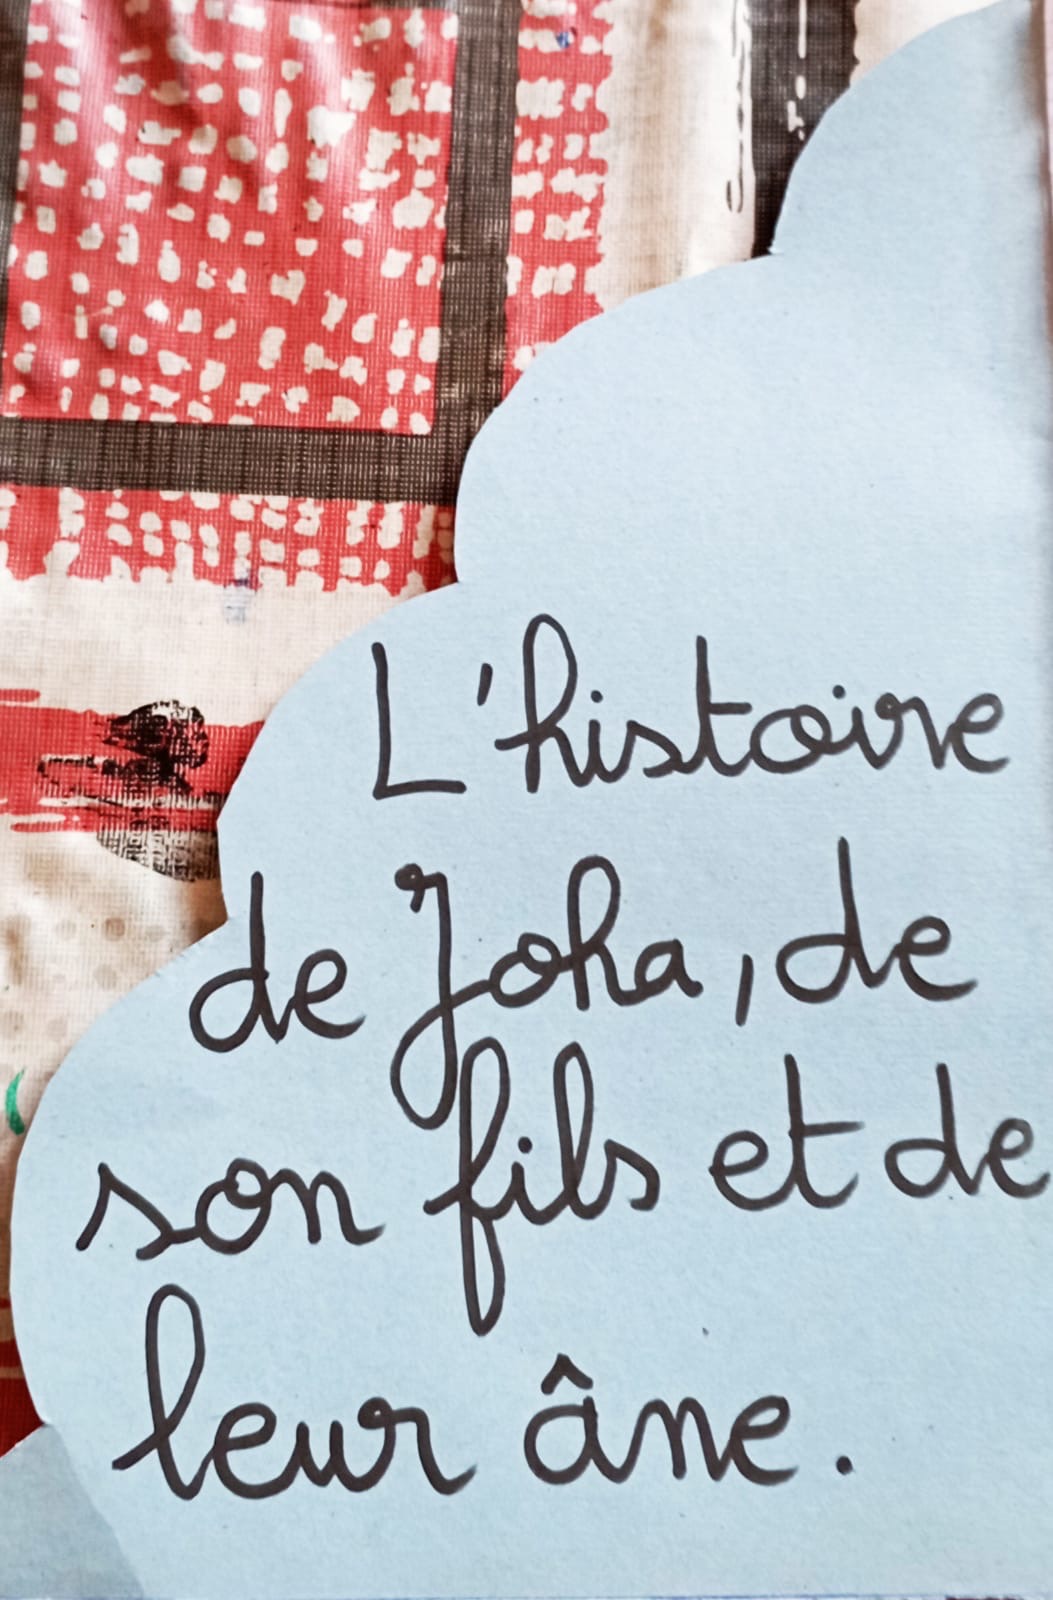 L'histoire
de Joha, de
son fils et de
leur âne.